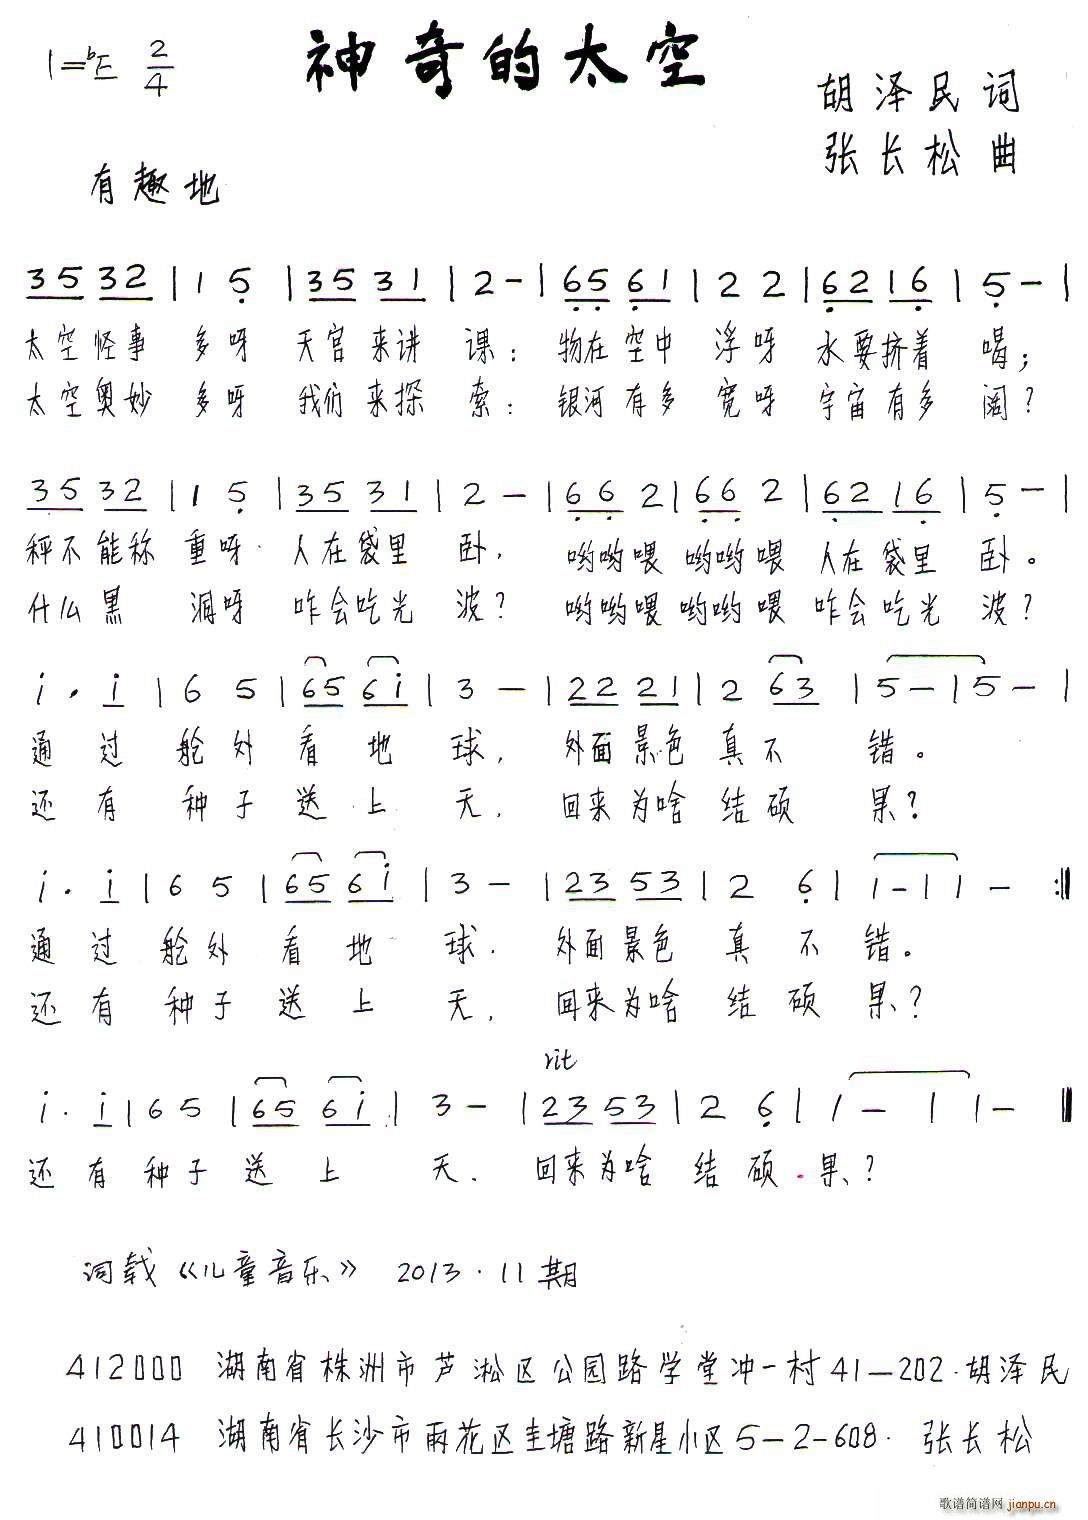 1=♭E 2/4
神奇的太空
胡泽民 词
张长松 曲
有趣地
3 5 3 2 | 1 5̣ | 3 5 3 1 | 2 - | 6̣ 5̣ 6̣ 1 | 2 2 | 6̣ 2 1 6̣ | 5̣ - |
太空怪事 多呀 天宫来讲 课; 物在空中 浮呀 水要挤着 喝;
太空奥妙 多呀 我们来探 索: 银河有多 宽呀 宇宙有多 阔?
3 5 3 2 | 1 5̣ | 3 5 3 1 | 2 - | 6̣ 6̣ 2 | 6̣ 6̣ 2 | 6̣ 2 1 6̣ | 5̣ - |
秤不能称 重呀. 人在袋里 卧, 哟哟喂 哟哟喂 人在袋里 卧。
什么黑 洞呀 咋会吃光 波? 哟哟喂 哟哟喂 咋会吃光 波?
i . i | 6 5 | 6 5 6 i | 3 - | 2 2 2 1 | 2 6 3 | 5 - | 5 - |
通过 舱外 看地 球, 外面景色 真不 错。
还有 种子 送上 天, 回来为啥 结硕 果?
i . i | 6 5 | 6 5 6 i | 3 - | 2 3 5 3 | 2 6̣ | 1 - | 1 - :‖
通过 舱外 看地 球. 外面景色 真不 错。
还有 种子 送上 天, 回来为啥 结硕 果?
rit
i . i | 6 5 | 6 5 6 i | 3 - | 2 3 5 3 | 2 6̣ | 1 - | 1 - ‖
还有 种子 送上 天. 回来为啥 结硕 . 果?
词载《儿童音乐》 2013.11期
412000 湖南省株洲市芦淞区公园路学堂冲一村41—202.胡泽民
410014 湖南省长沙市雨花区圭塘路新星小区5—2-608. 张长松
歌谱简谱网 jianpu.cn